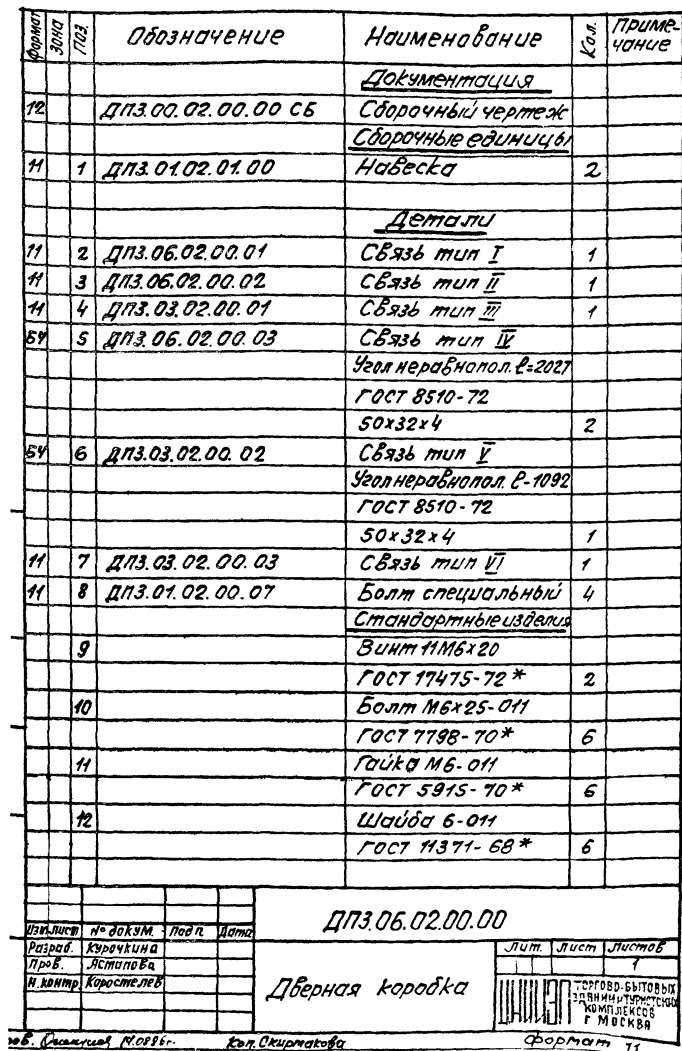 Формат Зона Поз. Обозначение Наименование Кол. Приме-
чание
Документация
12 ДПЗ.00.02.00.00 СБ Сборочный чертеж
Сборочные единицы
11 1 ДПЗ.01.02.01.00 Навеска 2
Детали
11 2 ДПЗ.06.02.00.01 Связь тип I 1
11 3 ДПЗ.06.02.00.02 Связь тип II 1
11 4 ДПЗ.03.02.00.01 Связь тип III 1
БЧ 5 ДПЗ.06.02.00.03 Связь тип IV
Угол неравнопол. ℓ=2027
ГОСТ 8510-72
50х32х4 2
БЧ 6 ДПЗ.03.02.00.02 Связь тип V
Угол неравнопол. ℓ-1092
ГОСТ 8510-72
50х32х4 1
11 7 ДПЗ.03.02.00.03 Связь тип VI 1
11 8 ДПЗ.01.02.00.07 Болт специальный 4
Стандартные изделия
9 Винт 11М6х20
ГОСТ 17475-72* 2
10 Болт М6х25-011
ГОСТ 7798-70* 6
11 Гайка М6-011
ГОСТ 5915-70* 6
12 Шайба 6-011
ГОСТ 11371-68* 6
ДПЗ.06.02.00.00
Изм. Лист № докум. Подп. Дата
Разраб. Курочкина
Пров. Астапова
Н.контр Коростелев
Дверная коробка
Лит. Лист Листов
1
ЦНИИЭП ТОРГОВО-БЫТОВЫХ
ЗДАНИЙ И ТУРИСТСКИХ
КОМПЛЕКСОВ
Г МОСКВА
Коп. Скирмакова Формат 11